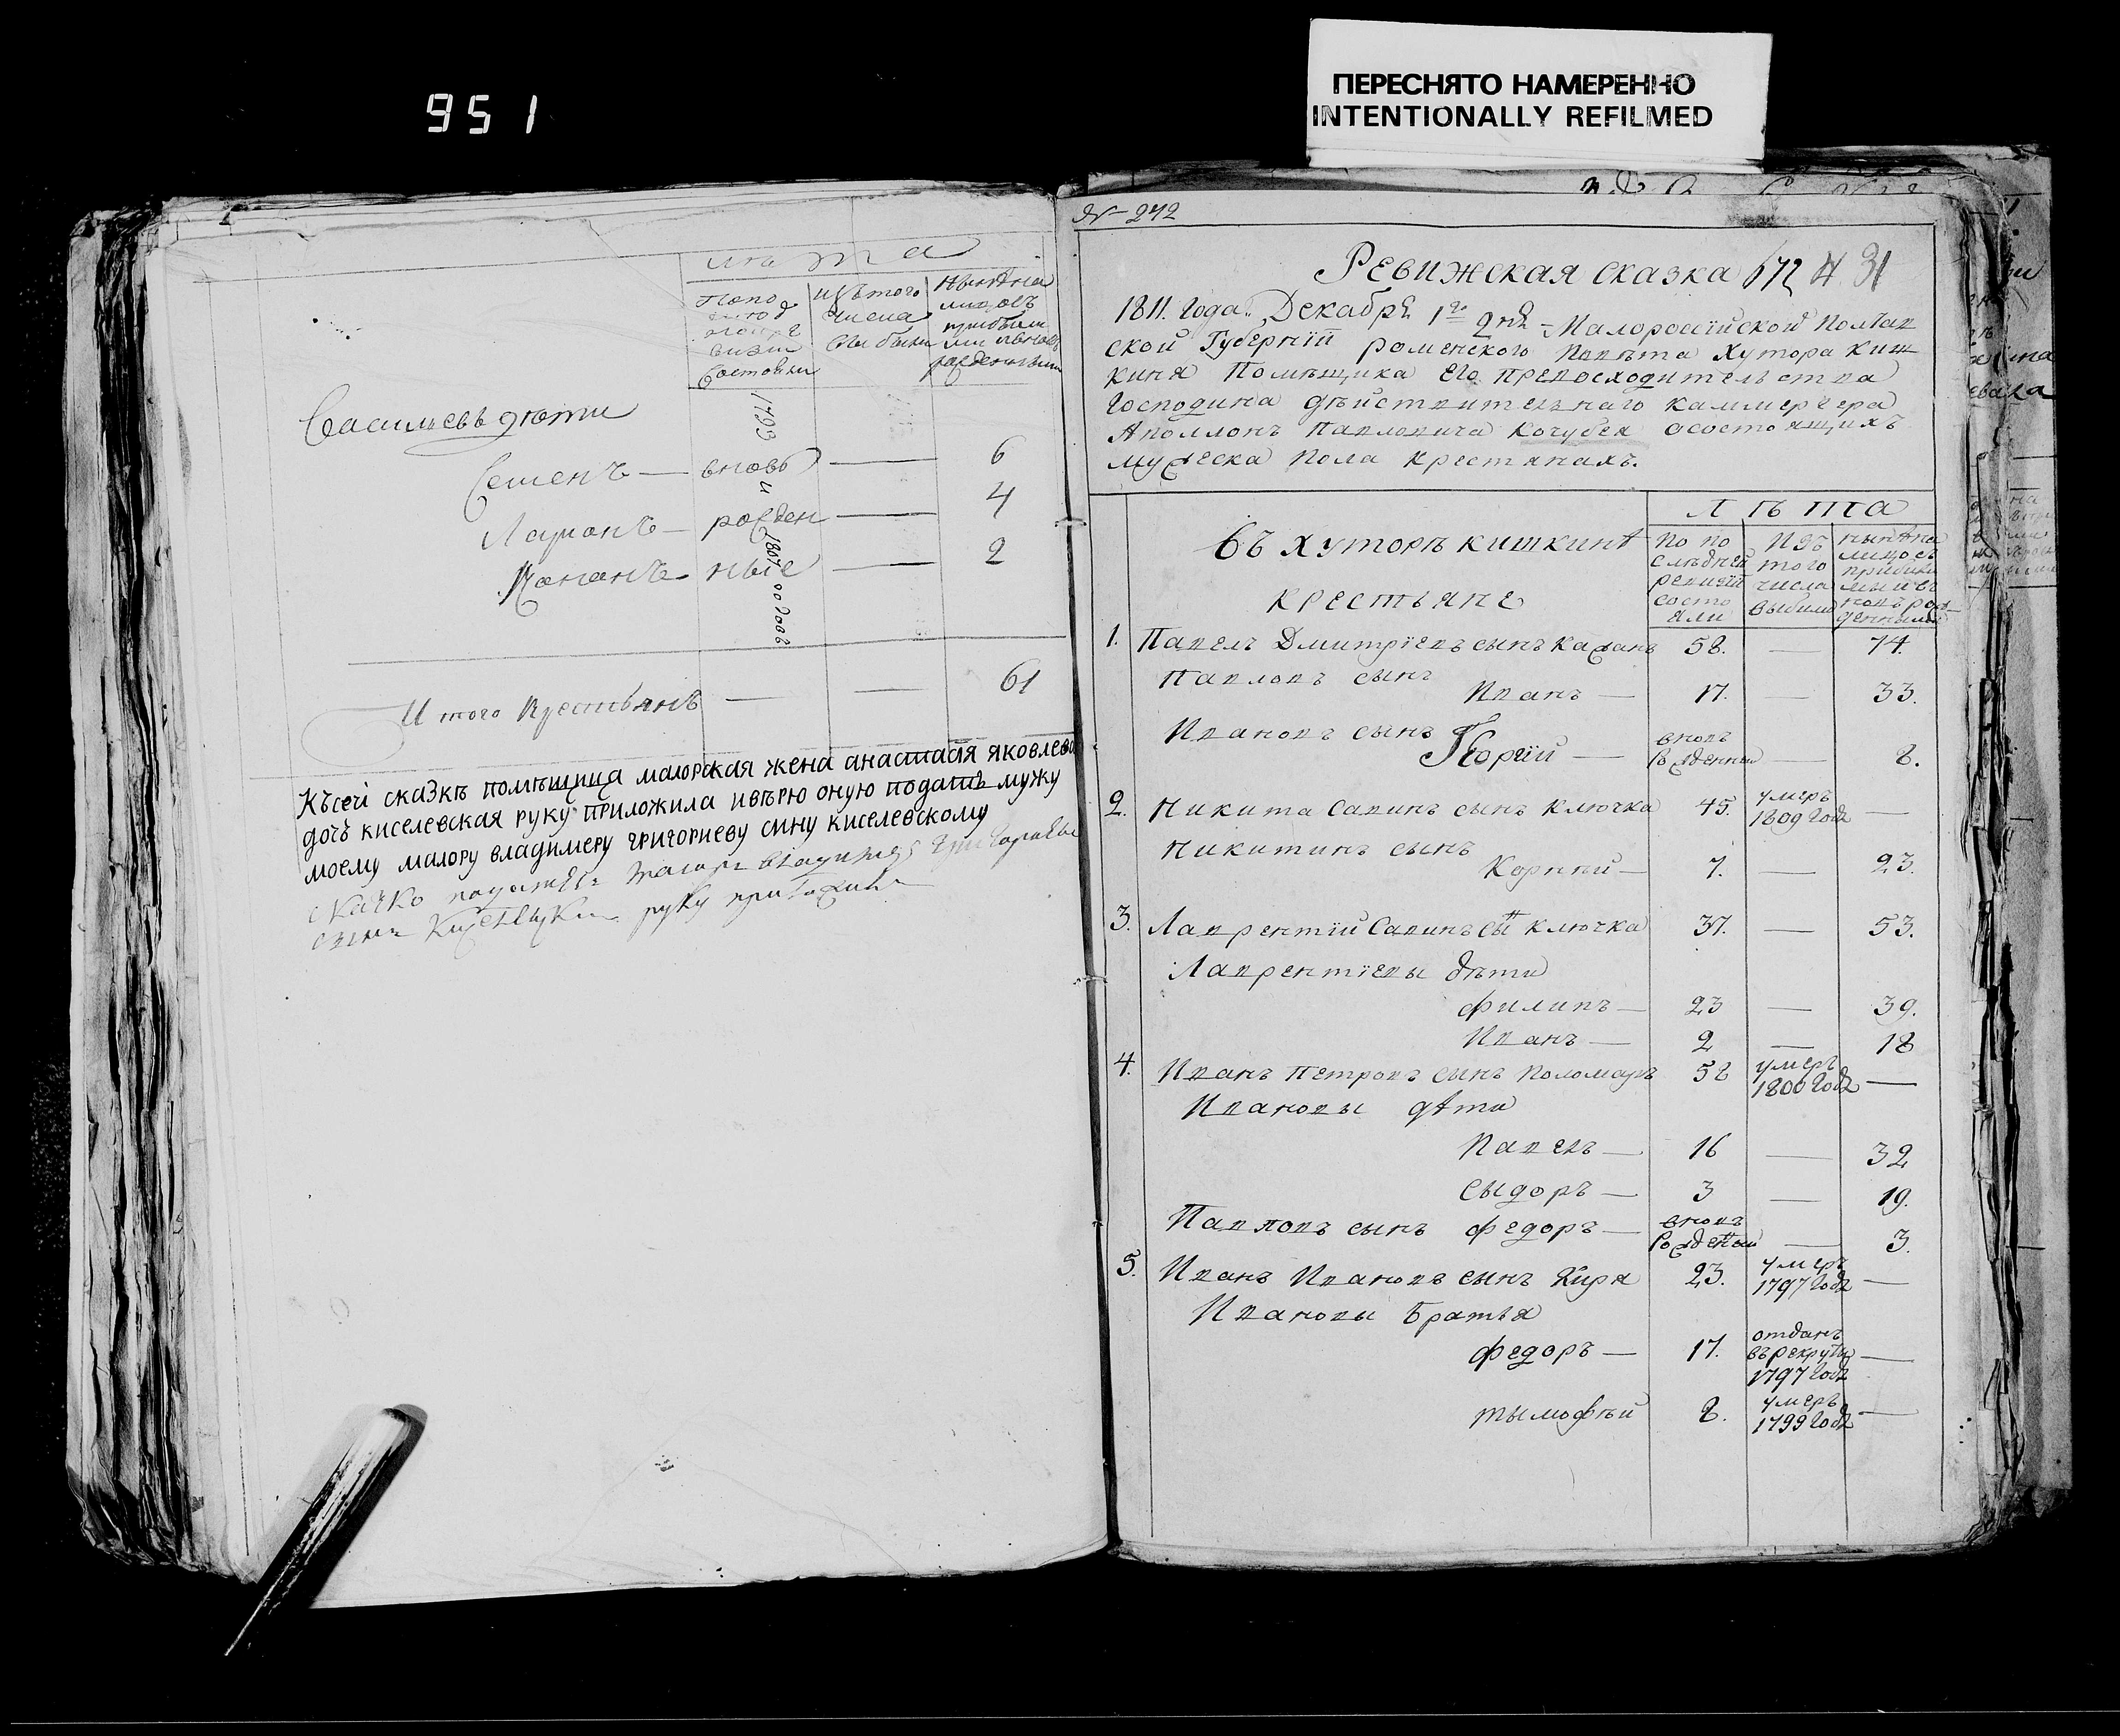 951
ПЕРЕСНЯТО НАМЕРЕННО
INTENTIONALLY REFILMED
лѣта
По по
следней
ревизии
состояли
изъ того
числа
выбыли
Васильевъ дети
1793
Семенъ — вновь — 6
и
Ларионъ — рожден — 4
1807
Кононъ — ные — 2
годовъ
Итого крестьянъ — — 61
Късей сказкѣ помѣщица маіорская жена анастасія яковлева
дочъ киселевская руку приложила ивѣрю оную подать мужу
моему маіору владимеру григориеву сину киселевскому
руку приложилъ
№ 242
Ревижская сказка 672 31
1811. года. Декабря 1го дня Малоросийской Полтав
ской Губернїи роменского Повѣта Хутора Киш
кина Помѣщика Его превосходительства
Господина дѣйствительнаго каммергера
Аполлона Павловича Кочубея осостоящихъ
мужеска пола крестянахъ.
Лѣта
Въ хуторѣ кишкинѣ
крестьяне
По по
слѣдней
ревизїи
состо
яли
Изъ
того
числа
выбыло
нынѣ на
лицо съ
прибы
лыми и въ
новь рож
денными
1. Павелъ Дмитрїевъ сынъ Кажанъ 58. — 74.
Павловъ сынъ
Иванъ — 17. — 33.
Ивановъ сынъ
вновь
рожденный — 8.
2. Никита Савинъ сынъ Ключка 45. умеръ 1809 года —
Никитинъ сынъ
Корний — 7. — 23.
3. Лаврентїй Савинъ сынъ Ключка 37. — 53.
Лаврентїевы дѣти
Филипъ — 23 — 39.
Иванъ — 2 — 18
4. Иванъ Петровъ сынъ Поломаръ 58 умеръ 1800 года —
Ивановы дѣти
Павелъ — 16 — 32
Сыдоръ — 3 — 19.
Павловъ сынъ Федоръ — вновь рожденный — 3.
5. Иванъ Ивановъ сынъ Киря 23. умеръ 1797 года —
Ивановы братья
Федоръ — 17. отданъ въ рекруты 1797 года —
Тымофѣй 8. умеръ 1799 года —